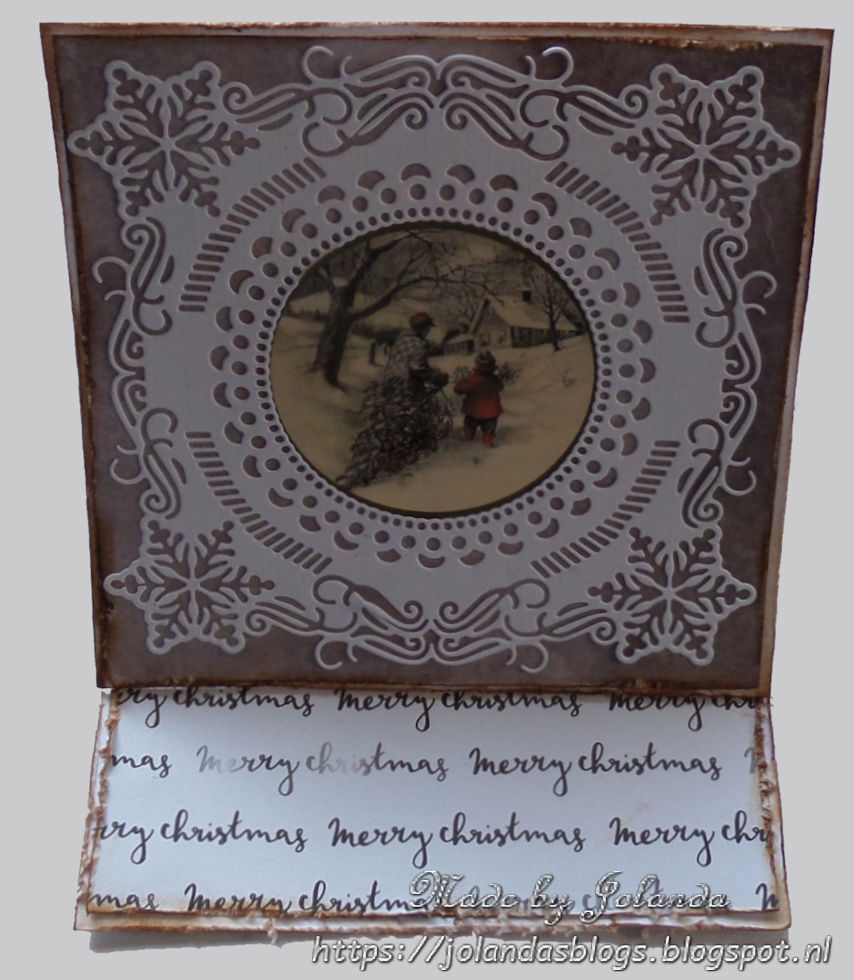 rry christmas Merry christmas Merry chr
mas Merry christmas Merry christmas
rry christmas Merry christmas Merry chr
mas Merry christmas Merry christmas M
Made by Jolanda
https://jolandasblogs.blogspot.nl